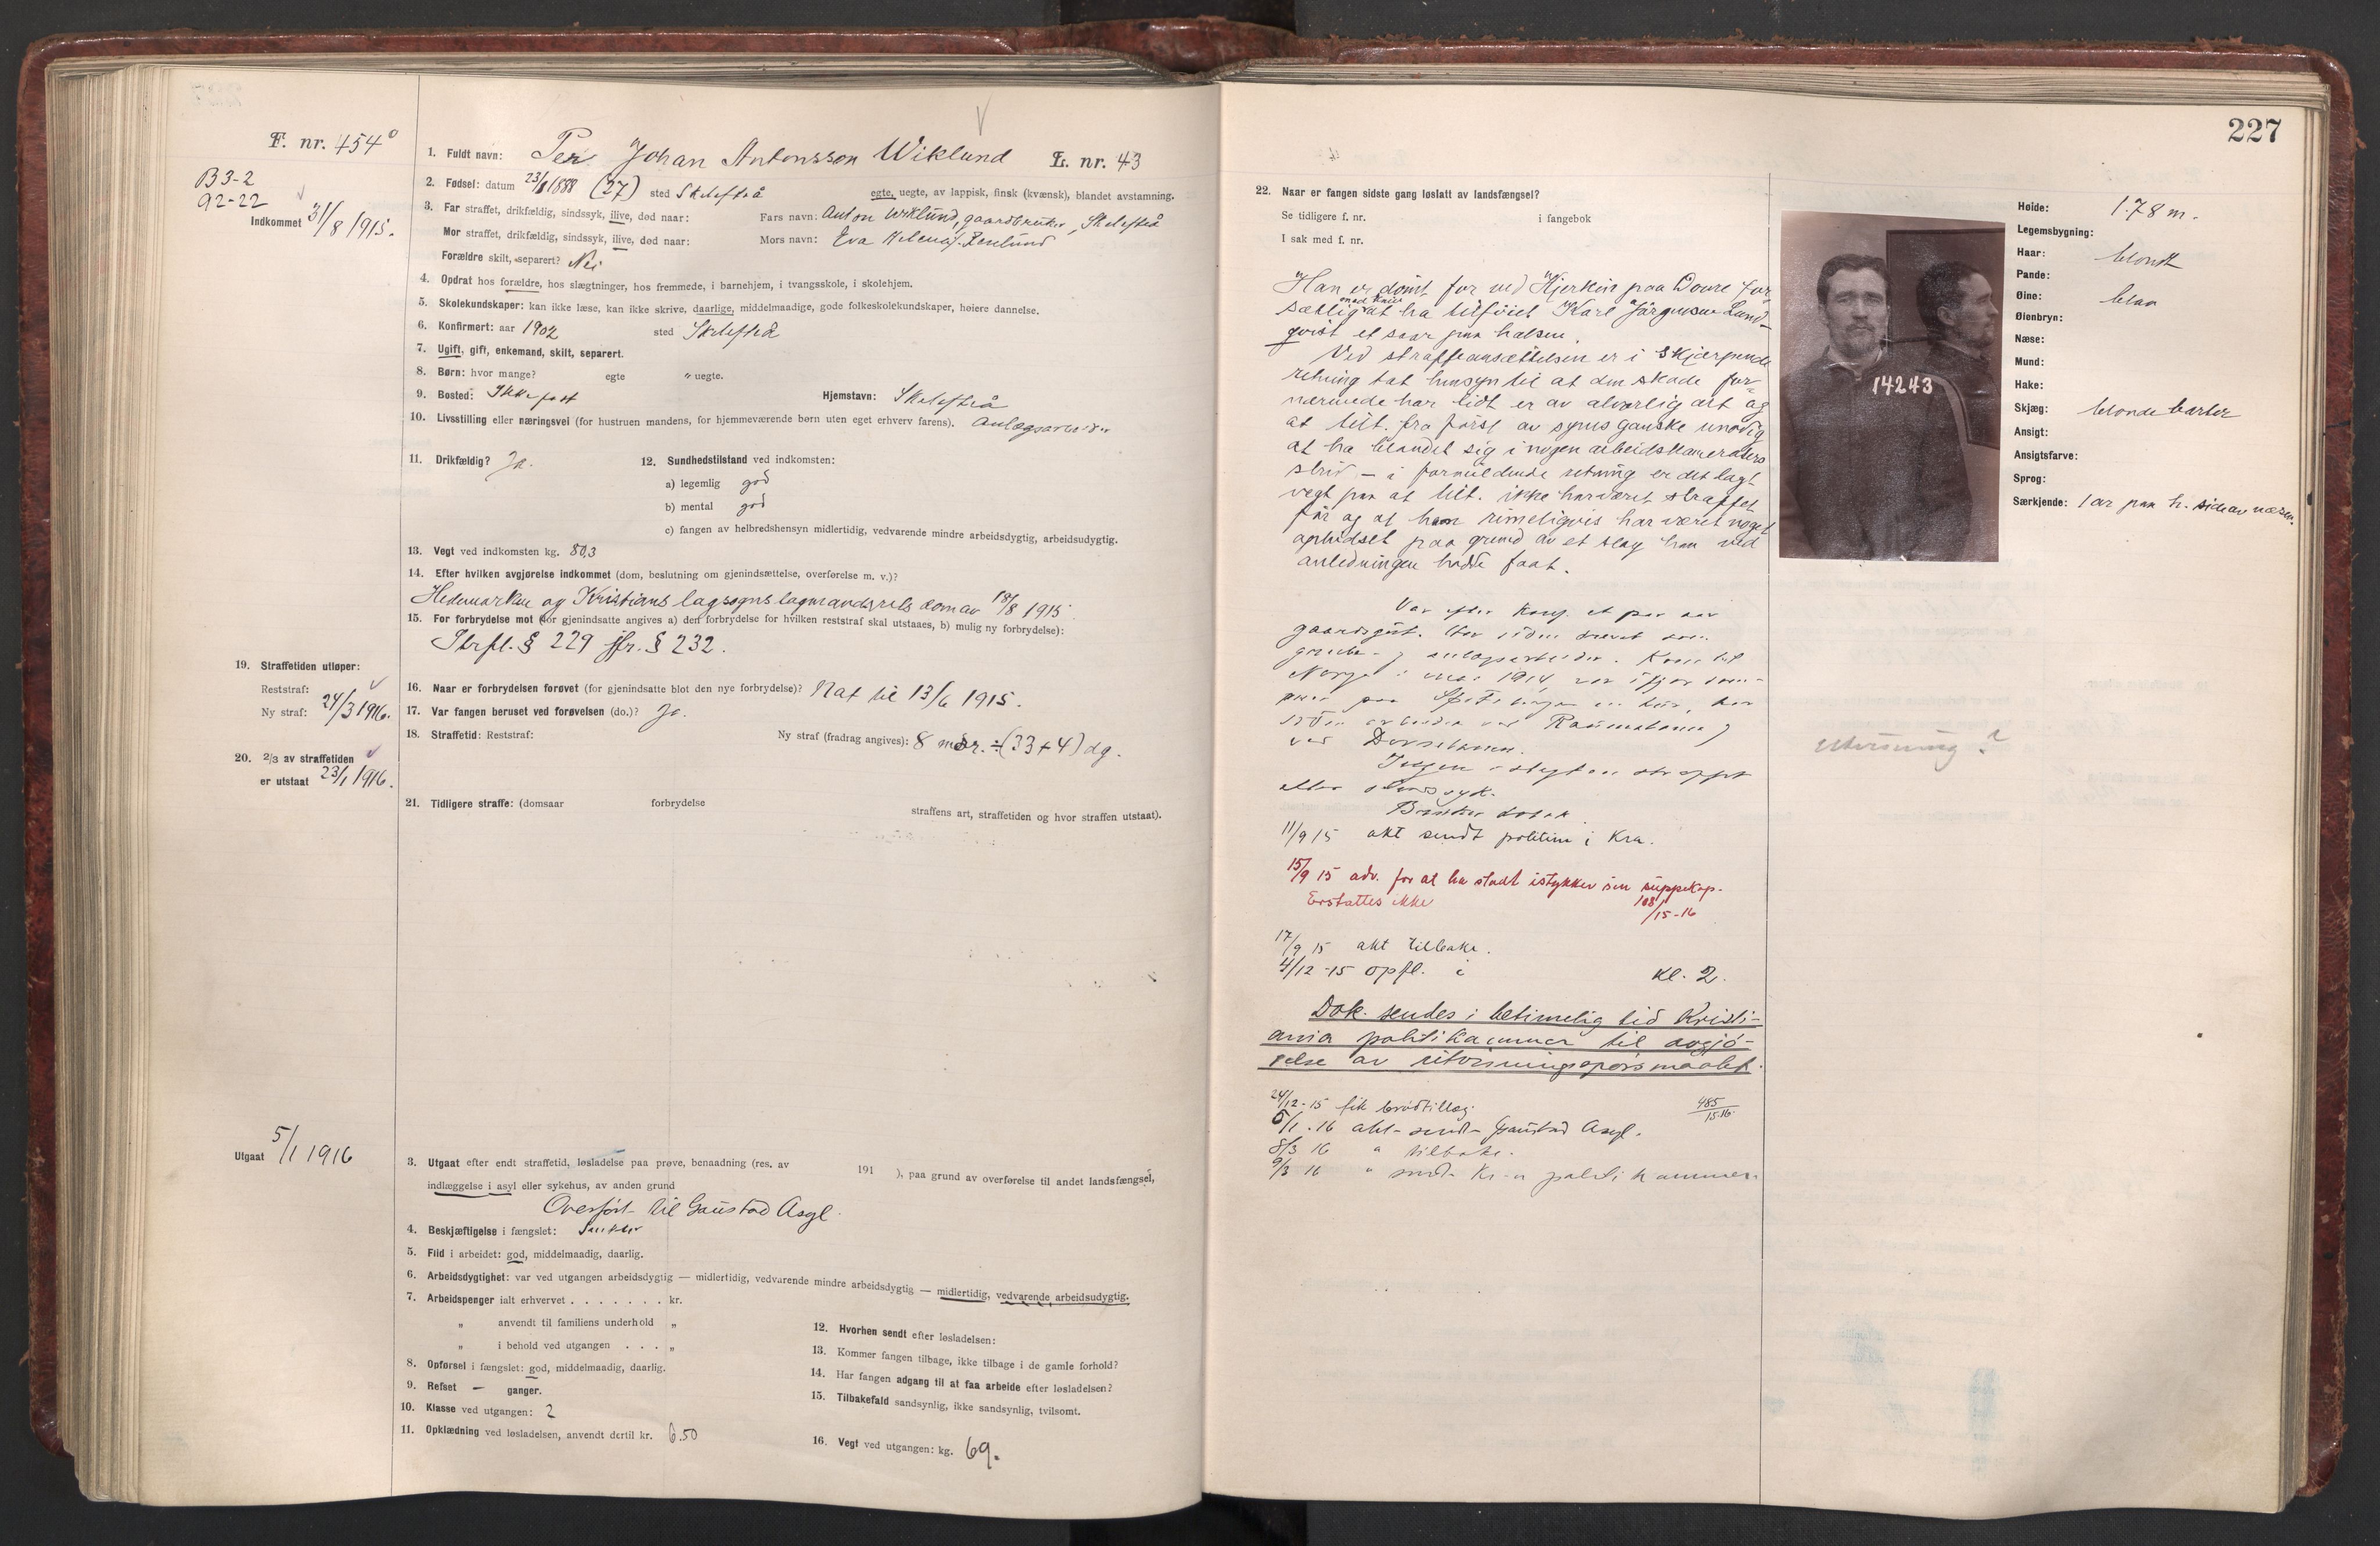 F. nr. 454
B3-2
92-22
Indkommet 31/8 1915.
1. Fuldt navn: Per Johan Antonsson Wiklund L. nr. 43
2. Fødsel: datum 23/8 1888 (27) sted Skelefteå egte, uegte, av lappisk, finsk (kvænsk), blandet avstamning.
3. Far straffet, drikfældig, sindssyk, ilive, død naar: Fars navn: Anton Wiklund, gaardbruker, Skelefteå
Mor straffet, drikfældig, sindssyk, ilive, død naar: Mors navn: Eva Helena
Forældre skilt, separert? Nei
4. Opdrat hos forældre, hos slægtninger, hos fremmede, i barnehjem, i tvangsskole, i skolehjem.
5. Skolekundskaper: kan ikke læse, kan ikke skrive, daarlige, middelmaadige, gode folkeskolekundskaper, høiere dannelse.
6. Konfirmert: aar 1902 sted Skelefteå
7. Ugift, gift, enkemand, skilt, separert.
8. Børn: hvor mange? egte " uegte.
9. Bosted: Ikke fast Hjemstavn: Skelefteå
10. Livsstilling eller næringsvei (for hustruen mandens, for hjemmeværende børn uten eget erhverv farens). Anlægsarbeider
11. Drikfældig? Ja. 12. Sundhedstilstand ved indkomsten:
a) legemlig god
b) mental god
c) fangen av helbredshensyn midlertidig, vedvarende mindre arbeidsdygtig, arbeidsudygtig.
13. Vegt ved indkomsten kg. 80,3
14. Efter hvilken avgjørelse indkommet (dom, beslutning om gjenindsættelse, overførelse m. v.)?
Hedemarken og Kristians lagsogns lagmandsrets dom av 18/8 1915.
15. For forbrydelse mot (for gjenindsatte angives a) den forbrydelse for hvilken reststraf skal utstaaes, b) mulig ny forbrydelse):
Strfl. § 229 jfr. § 232.
19. Straffetiden utløper:
Reststraf:
Ny straf: 24/3 1916.
16. Naar er forbrydelsen forøvet (for gjenindsatte blot den nye forbrydelse)? Nat til 13/6 1915.
17. Var fangen beruset ved forøvelsen (do.)? Ja.
18. Straffetid: Reststraf: Ny straf (fradrag angives): 8 mdr. ÷ (33+4) dg.
20. 2/3 av straffetiden
er utstaat 23/1 1916.
21. Tidligere straffe: (domsaar forbrydelse straffens art, straffetiden og hvor straffen utstaat).
Utgaat 5/1 1916
3. Utgaat efter endt straffetid, løsladelse paa prøve, benaadning (res. av 191 ), paa grund av overførelse til andet landsfængsel,
indlæggelse i asyl eller sykehus, av anden grund
Overført til Gaustad Asyl.
4. Beskjæftigelse i fængslet:
5. Flid i arbeidet: god, middelmaadig, daarlig.
6. Arbeidsdygtighet: var ved utgangen arbeidsdygtig — midlertidig, vedvarende mindre arbeidsdygtig — midlertidig, vedvarende arbeidsudygtig.
7. Arbeidspenger ialt erhvervet . . . . . . . kr.
" anvendt til familiens underhold "
" i behold ved utgangen . . . "
8. Opførsel i fængslet: god, middelmaadig, daarlig.
9. Refset — ganger.
10. Klasse ved utgangen: 2
11. Opklædning ved løsladelsen, anvendt dertil kr. 6.50
12. Hvorhen sendt efter løsladelsen:
13. Kommer fangen tilbage, ikke tilbage i de gamle forhold?
14. Har fangen adgang til at faa arbeide efter løsladelsen?
15. Tilbakefald sandsynlig, ikke sandsynlig, tvilsomt.
16. Vegt ved utgangen: kg. 69.
227
22. Naar er fangen sidste gang løslatt av landsfængsel?
Se tidligere f. nr. i fangebok
I sak med f. nr.
Han er dømt for ved Hjerkin paa Dovre for-
sætlig med kniv at ha tilføiet Karl Jørgensen Lund-
qvist et saar paa halsen.
Ved straffeansættelsen er i skjærpende
retning tat hensyn til at den skade for-
nærmede har lidt er av alvorlig art og
at tilt. fra først av synes ganske unødig
at ha blandet sig i nogen arbeidskameraters
strid — i formildende retning er det lagt
vegt paa at tilt. ikke har været straffet
før og at han rimeligvis har været noget
ophidset paa grund av et slag han ved
anledningen hadde faat.
Var efter konf. et par aar
gaardsgut. Har siden drevet som
grube- og anlægsarbeider. Kom til
Norge i mai 1914, var ifjor som-
mer paa Spitsbergen en tur, har
siden arbeidet ved Raumabanen og
ved Dovrebanen.
Ingen i slegten straffet
eller sindssyk.
11/9 15 akt sendt politiet i Kra.
15/9 15 adv. for at ha slaat istykker sin suppekop.
Erstattes ikke 108/15-16
17/9 15 akt tilbake.
4/12-15 opfl. i kl. 2.
Dok. sendes i betimelig tid Kristi-
ania politikammer til avgjø-
relse av utvisningsspørsmaalet.
24/12-15 fik brødtillæg. 485/15-16.
5/1.16 akt sendt Gaustad Asyl.
8/3 16 " tilbake.
9/3 16 " sendt Kr.a politikammer
14243
Høide: 1.78 m.
Legemsbygning:
Haar: blondt
Pande:
Øine: blaa
Øienbryn:
Næse:
Mund:
Hake:
Skjæg: blonde barter
Ansigt:
Ansigtsfarve:
Sprog:
Særkjende: 1 ar paa h. side av næsen.
utvisning?